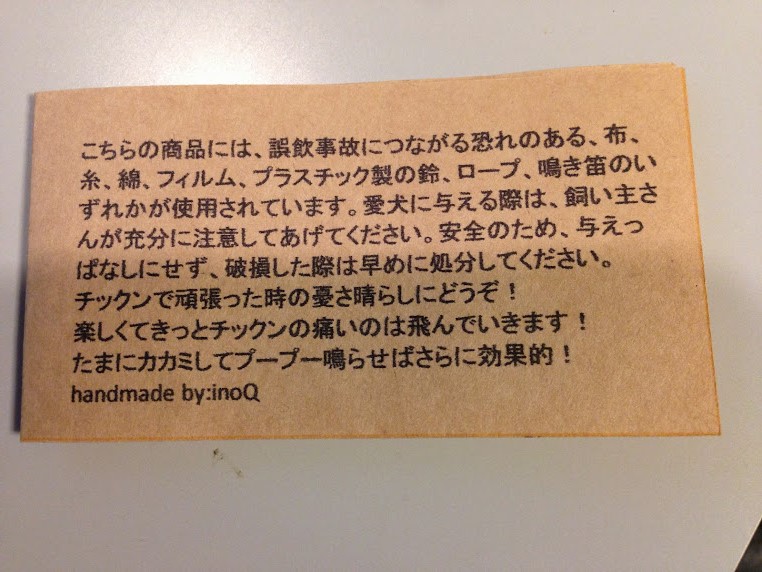 こちらの商品には、誤飲事故につながる恐れのある、布、
糸、綿、フィルム、プラスチック製の鈴、ロープ、鳴き笛のい
ずれかが使用されています。愛犬に与える際は、飼い主さ
んが充分に注意してあげてください。安全のため、与えっ
ぱなしにせず、破損した際は早めに処分してください。
チックンで頑張った時の憂さ晴らしにどうぞ！
楽しくてきっとチックンの痛いのは飛んでいきます！
たまにカカミしてプープー鳴らせばさらに効果的！
handmade by:inoQ